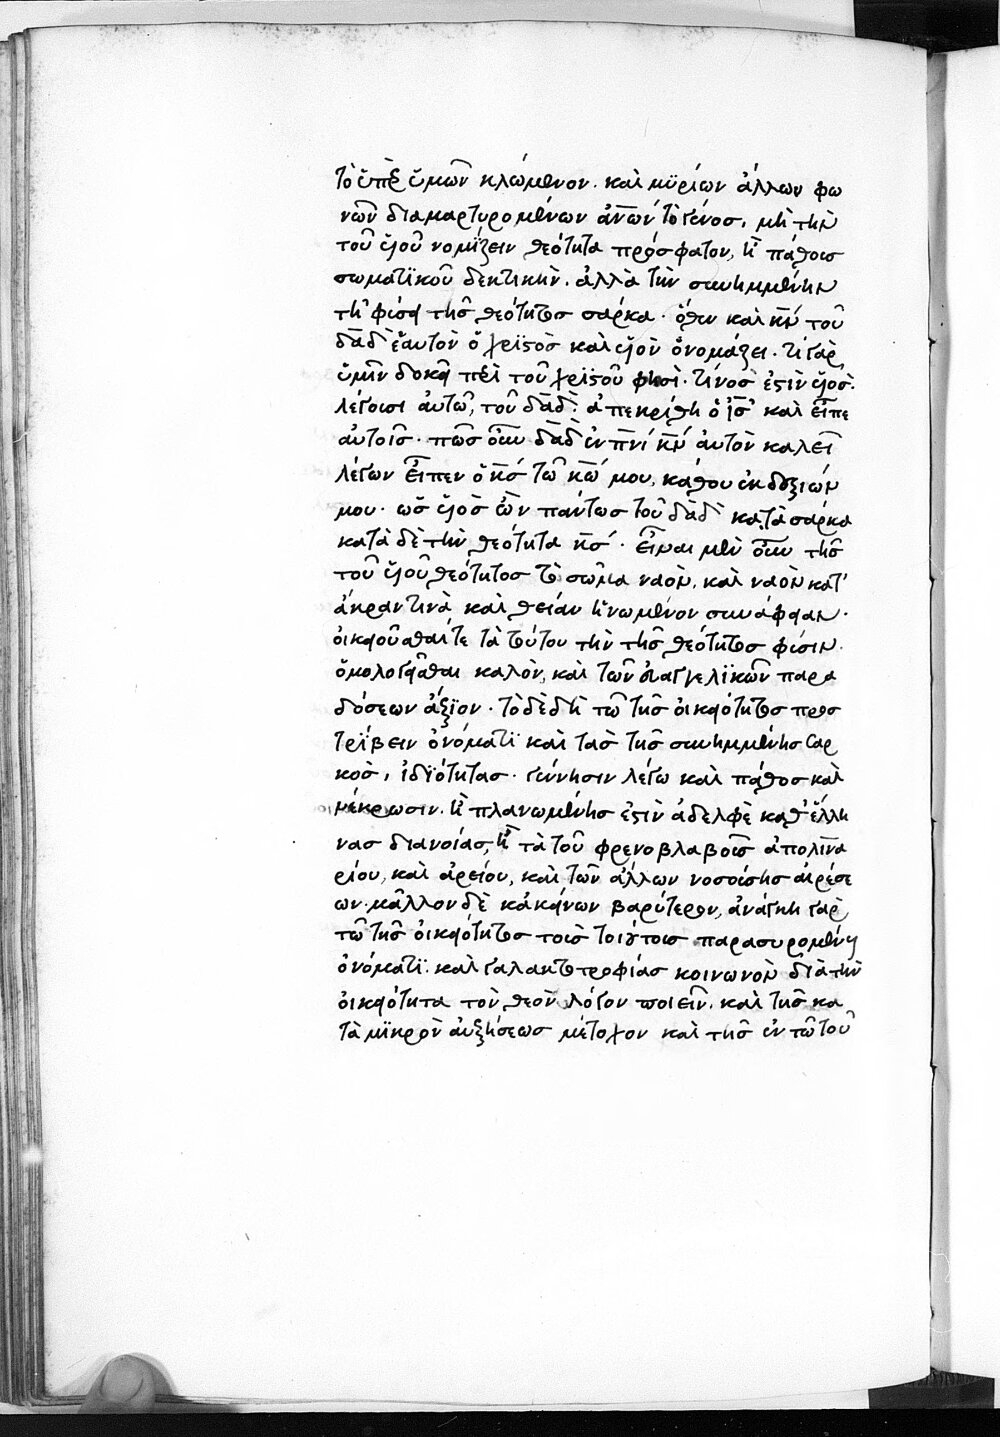 τὸ ὑπὲρ ὑμῶν κλώμενον. καὶ μϋρίων ἄλλων φω
νῶν διαμαρτυρομένων ἀν̅ων τὸ γένοσ, μὴ τὴν
τοῦ ὑϊοῦ νομΐζειν θεότητα πρόσφατον, ἢ πάθουσ
σωματϊκοῦ δεκτικὴν. ἀλλὰ τὴν συνημμένην
τῆ φύσει τῆσ θεότητοσ σάρκα. ὅθεν καὶ κ̅ν τοῦ
δα̅δ ἑαυτὸν ὁ χρϊστὸσ καὶ ὑϊὸν ὀνομάζει. τί γὰρ
ὑμῖν δοκεῖ περὶ τοῦ χρϊστοῦ φησὶ. τίνοσ ἐστὶν ὑϊὸσ.
λέγουσι αὐτῶ, τοῦ δα̅δ. ἀπεκρίθη ὁ ι̅σ καὶ εἶπε
αὐτοῖσ. πῶσ οὖν δα̅δ ἐν π̅νι κ̅ν αὐτὸν καλεῖ
λέγων εἶπεν ὁ κ̅σ τῶ κ̅ω μου, κάθου ἐκ δεξιῶν
μου. ὡσ ὑϊὸσ ὢν πάντωσ τοῦ δα̅δ κατὰ σάρκα
κατὰ δὲ τὴν θεότητα κ̅σ. εἶναι μὲν οὖν τῆσ
τοῦ ὑϊοῦ θεότητοσ τὸ σῶμα ναὸν, καὶ ναὸν κατ'
ἄκραν τινὰ καὶ θείαν ἡνωμένον συνάφειαν.
οἰκειοῦσθαί τε τὰ τούτου τὴν τῆσ θεότητοσ φύσιν.
ὁμολογεῖσθαι καλὸν, καὶ τῶν εὐαγγελϊκῶν παρα
δόσεων ἄξϊον. τὸ δὲ δὴ τῶ τῆσ οἰκειότητοσ προσ
τρίβειν ὀνόματϊ καὶ τὰσ τῆσ συνημμένησ σαρ
κὸσ, ἰδϊότητασ. γέννησιν λέγω καὶ πάθοσ καὶ
νέκρωσιν. ἢ πλανωμένησ ἐστὶν ἀδελφὲ καθ' ἕλλη
νασ διανοίασ, ἢ τὰ τοῦ φρενοβλαβοῦσ ἀπολινα
ρίου, καὶ ἀρείου, καὶ τῶν ἄλλων νοσούσησ αἱρέσε
ων. μᾶλλον δὲ κἀκείνων βαρύτερον, ἀνάγκη γὰρ
τῶ τῆσ οἰκειότητοσ τοὺσ τοιούτουσ παρασυρομένουσ
ὀνόματϊ. καὶ γαλακτοτροφίασ κοινωνὸν διὰ τὴν
οἰκειότητα τὸν θεὸν λόγον ποιεῖν, καὶ τῆσ κα
τὰ μϊκρὸν αὐξήσεωσ μέτοχον καὶ τῆσ ἐν τῶ τοῦ